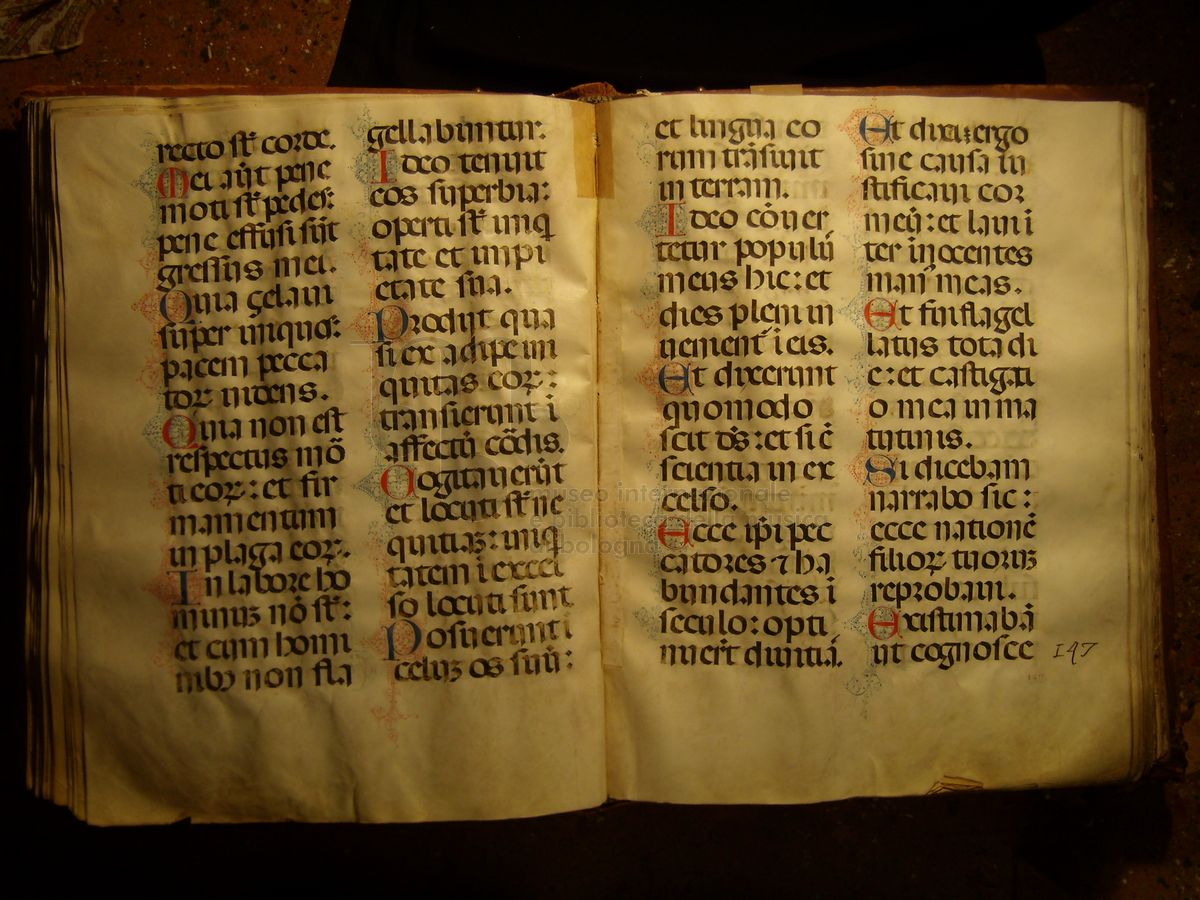 recto st̄ corde.
Mei aūt pene
moti st̄ pedes:
pene effusi sūt
gressus mei.
Quia çelaui
super iniquos:
pacem pecca
torꝝ uidens.
Quia non est
respectus mō
ti eorꝝ: et fir
mamentum
in plaga eorꝝ.
In labore ho
minuꝫ nō st̄:
et cum homi
nibꝫ non fla
gellabuntur.
Ideo tenuit
eos superbia:
operti st̄ iniq
tate et impi
etate sua.
Prodijt qua
si ex adipe ini
quitas eorꝝ:
transierunt i
affectū cōdis.
Cogitauerūt
et locuti st̄ ne
quitiaꝫ: iniq
tatem i excel
so locuti sunt
Posuerunt i
celuꝫ os suū:
et lingua eo
rum trāsiuit
in terram.
Ideo cōuer
tetur populꝰ
meus hic: et
dies pleni in
uenient̄ i eis.
Et dixerunt
quomodo
scit ds̄: et si ē
scientia in ex
celso.
Ecce ip̄i pec
catores ⁊ ha
bundantes i
seculo: opti
nuer̄t diuitiā.
Et dixi: ergo
sine causa iu
stificaui cor
meū: et laui i
ter inocentes
man' meas.
Et fui flagel
latus tota di
e: et castigati
o mea in ma
tutinis.
Si dicebam
narrabo sic:
ecce nationē
filiorꝝ tuoruꝫ
reprobaui.
Existimabā
ut cognosce
147
museo internazionale
e biblioteca
bologna